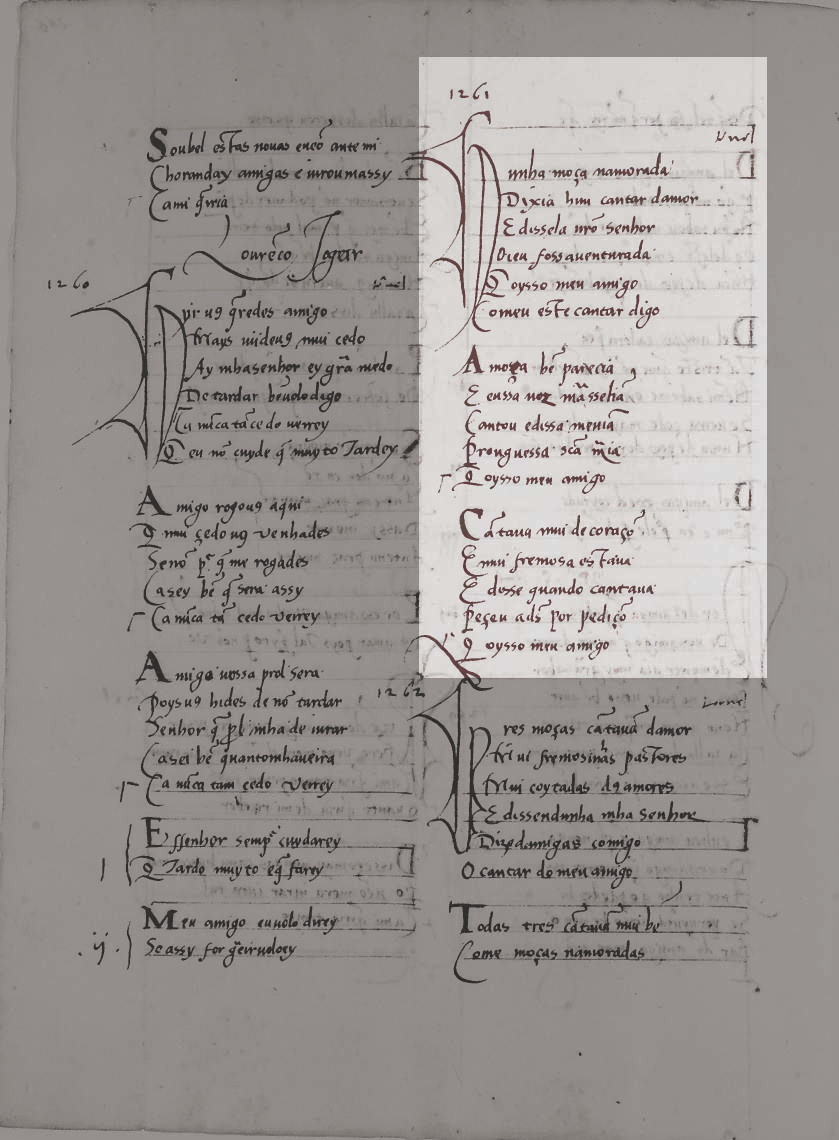 Soubel estas nouas encõ ante mi
Choranday amigas e iurou massy
Cami q̃ria
Lourẽço Jograr
1260
pir uꝯ q̃redes amigo
Mays uiideuꝯ mui cedo
Ay mhasenhor ey grã medo
De tardar bẽuolo digo
Ca nũca tã cedo verrey
Q̃ eu nõ cuyde q̃ muyto Tardey
Amigo rogouꝯ aqui
Q̃ mui çedo uꝯ venhades
Senõ por q̃ me rogades
Ca sey bẽ q̃ sera assy
Ca nũca tã cedo verrey
Amigo uossa prol sera
Poys uꝯ hides de nõ tardar
Senhor q̃ prol mha de iurar
Ca sei bẽ quantomhaueira
Ca nũca tam cedo verrey
I
Essenhor sempr̃ cuydarey
Q̃ Tardo muyto eq̃ farey
.ij.
Meu amigo euuolo direy
Se assy for
1261
Unel
Unha moça namorada
Dizia hũu cantar damor
E dissela nrõ senhor
Oieu fossauenturada
Q̃ oysso meu amigo
Comeu este cantar digo
A moça bẽ parecia
E eussa uoz mãsselia
Cantou edissa menia
Prouguessa scã mãia
Q̃ oysso meu amigo
Cãtaua mui de coraçõ
E mui fremosa estaua
E disse quando cantaua
Peçeu ads̃ por pediçõ
Q̃ oysso meu amigo
1262
Tres moças cãtauã damor
Mui fremosinhas pastores
Mui coytadas dos amores
E dissendunha mha Senhor
Dizedamigas comigo
O cantar do meu amigo
Todas tres cãtauã mui bẽ
Come moças namoradas